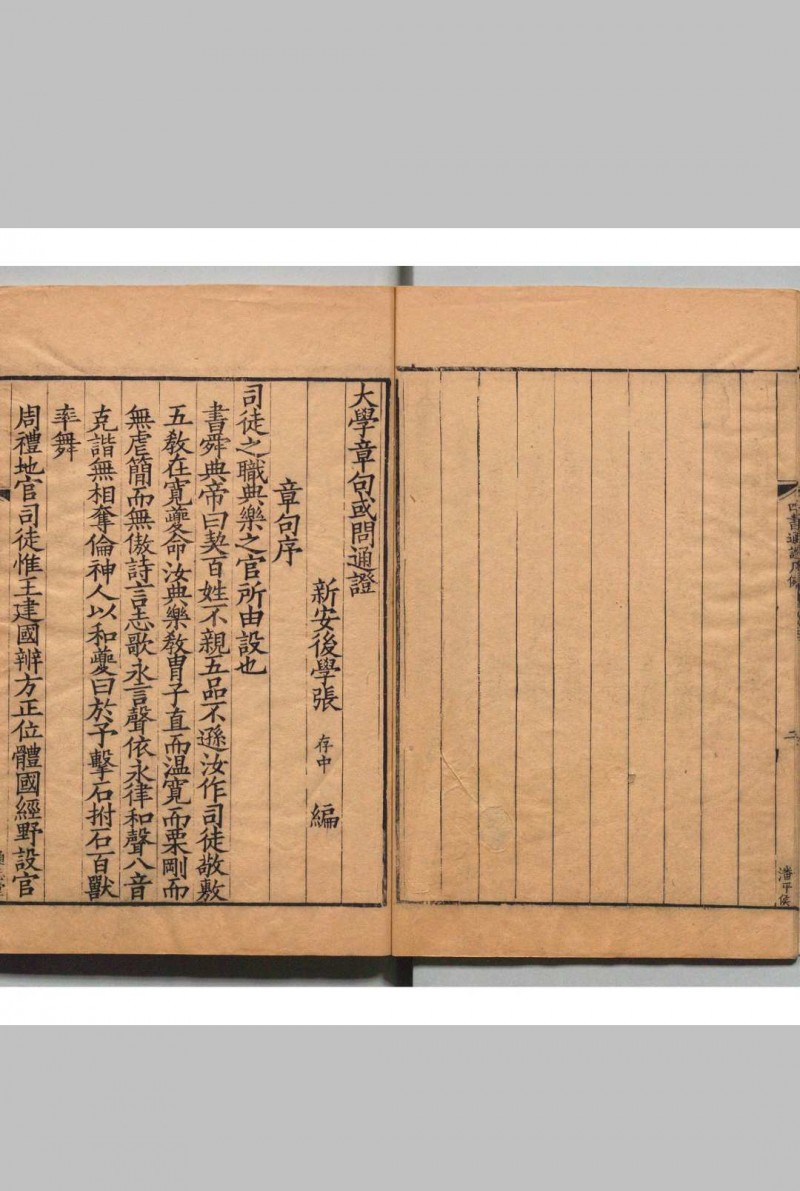 潘平侯
大學章句或問通證
新安後學張 存中 編
章句序
司徒之職典樂之官所由設也
書舜典帝曰契百姓不親五品不遜汝作司徒敬敷
五敎在寬夔命汝典樂敎胄子直而温寬而栗剛而
無虐簡而無傲詩言志歌永言聲依永律和聲八音
克諧無相奪倫神人以和夔曰於予擊石拊石百獸
率舞
周禮地官司徒惟王建國辨方正位體國經野設官